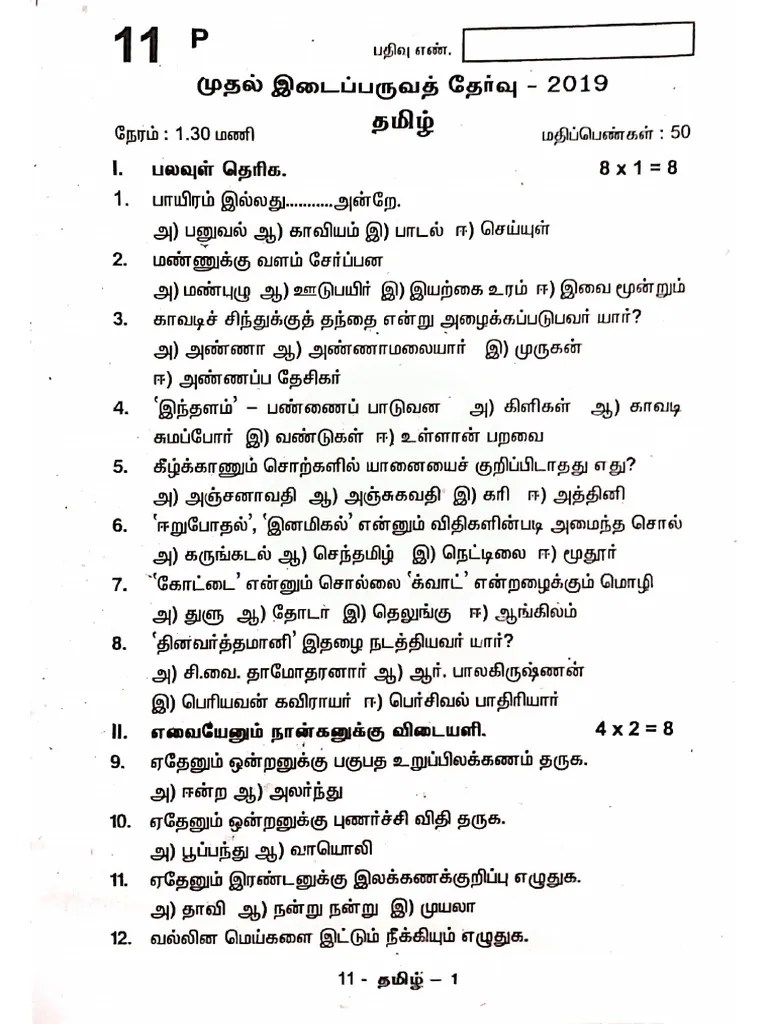 11 P
பதிவு எண்.
முதல் இடைப்பருவத் தேர்வு - 2019
தமிழ்
நேரம் : 1.30 மணி
மதிப்பெண்கள் : 50
I. பலவுள் தெரிக. 8 x 1 = 8
1. பாயிரம் இல்லது...........அன்றே.
அ) பனுவல் ஆ) காவியம் இ) பாடல் ஈ) செய்யுள்
2. மண்ணுக்கு வளம் சேர்ப்பன
அ) மண்புழு ஆ) ஊடுபயிர் இ) இயற்கை உரம் ஈ) இவை மூன்றும்
3. காவடிச் சிந்துக்குத் தந்தை என்று அழைக்கப்படுபவர் யார்?
அ) அண்ணா ஆ) அண்ணாமலையார் இ) முருகன்
ஈ) அண்ணப்ப தேசிகர்
4. 'இந்தளம்' – பண்ணைப் பாடுவன அ) கிளிகள் ஆ) காவடி
சுமப்போர் இ) வண்டுகள் ஈ) உள்ளான் பறவை
5. கீழ்க்காணும் சொற்களில் யானையைச் குறிப்பிடாதது எது?
அ) அஞ்சனாவதி ஆ) அஞ்சுகவதி இ) கரி ஈ) அத்தினி
6. 'ஈறுபோதல்', 'இனமிகல்' என்னும் விதிகளின்படி அமைந்த சொல்
அ) கருங்கடல் ஆ) செந்தமிழ் இ) நெட்டிலை ஈ) மூதூர்
7. 'கோட்டை' என்னும் சொல்லை 'க்வாட்' என்றழைக்கும் மொழி
அ) துளு ஆ) தோடர் இ) தெலுங்கு ஈ) ஆங்கிலம்
8. 'தினவர்த்தமானி' இதழை நடத்தியவர் யார்?
அ) சி.வை. தாமோதரனார் ஆ) ஆர். பாலகிருஷ்ணன்
இ) பெரியவன் கவிராயர் ஈ) பெர்சிவல் பாதிரியார்
II. எவையேனும் நான்கனுக்கு விடையளி. 4 x 2 = 8
9. ஏதேனும் ஒன்றனுக்கு பகுபத உறுப்பிலக்கணம் தருக.
அ) ஈன்ற ஆ) அலர்ந்து
10. ஏதேனும் ஒன்றனுக்கு புணர்ச்சி விதி தருக.
அ) பூப்பந்து ஆ) வாயொலி
11. ஏதேனும் இரண்டனுக்கு இலக்கணக்குறிப்பு எழுதுக.
அ) தாவி ஆ) நன்று நன்று இ) முயலா
12. வல்லின மெய்களை இட்டும் நீக்கியும் எழுதுக.
11 - தமிழ் – 1